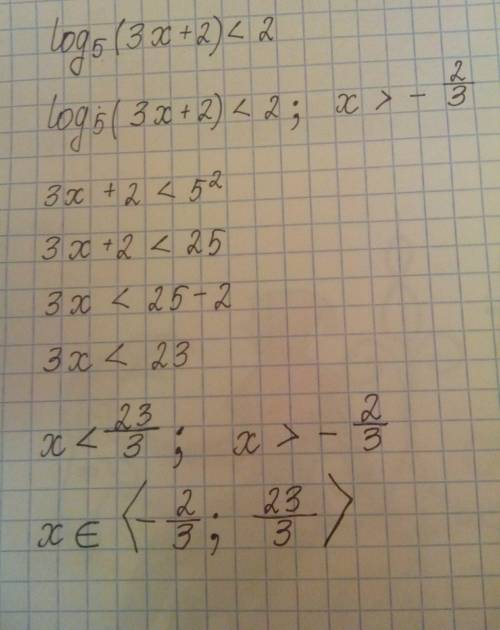 log₅(3x+2) < 2
log₅(3x+2) < 2; x > -2/3
3x + 2 < 5²
3x + 2 < 25
3x < 25 - 2
3x < 23
x < 23/3; x > -2/3
x ∈ ⟨-2/3; 23/3⟩